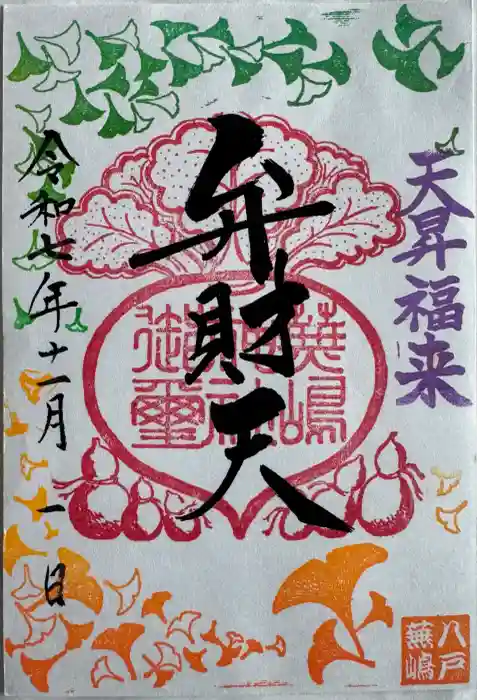 天昇福来
弁財天
蕪嶋神社御璽
令和七年十一月一日
八戸
蕪嶋